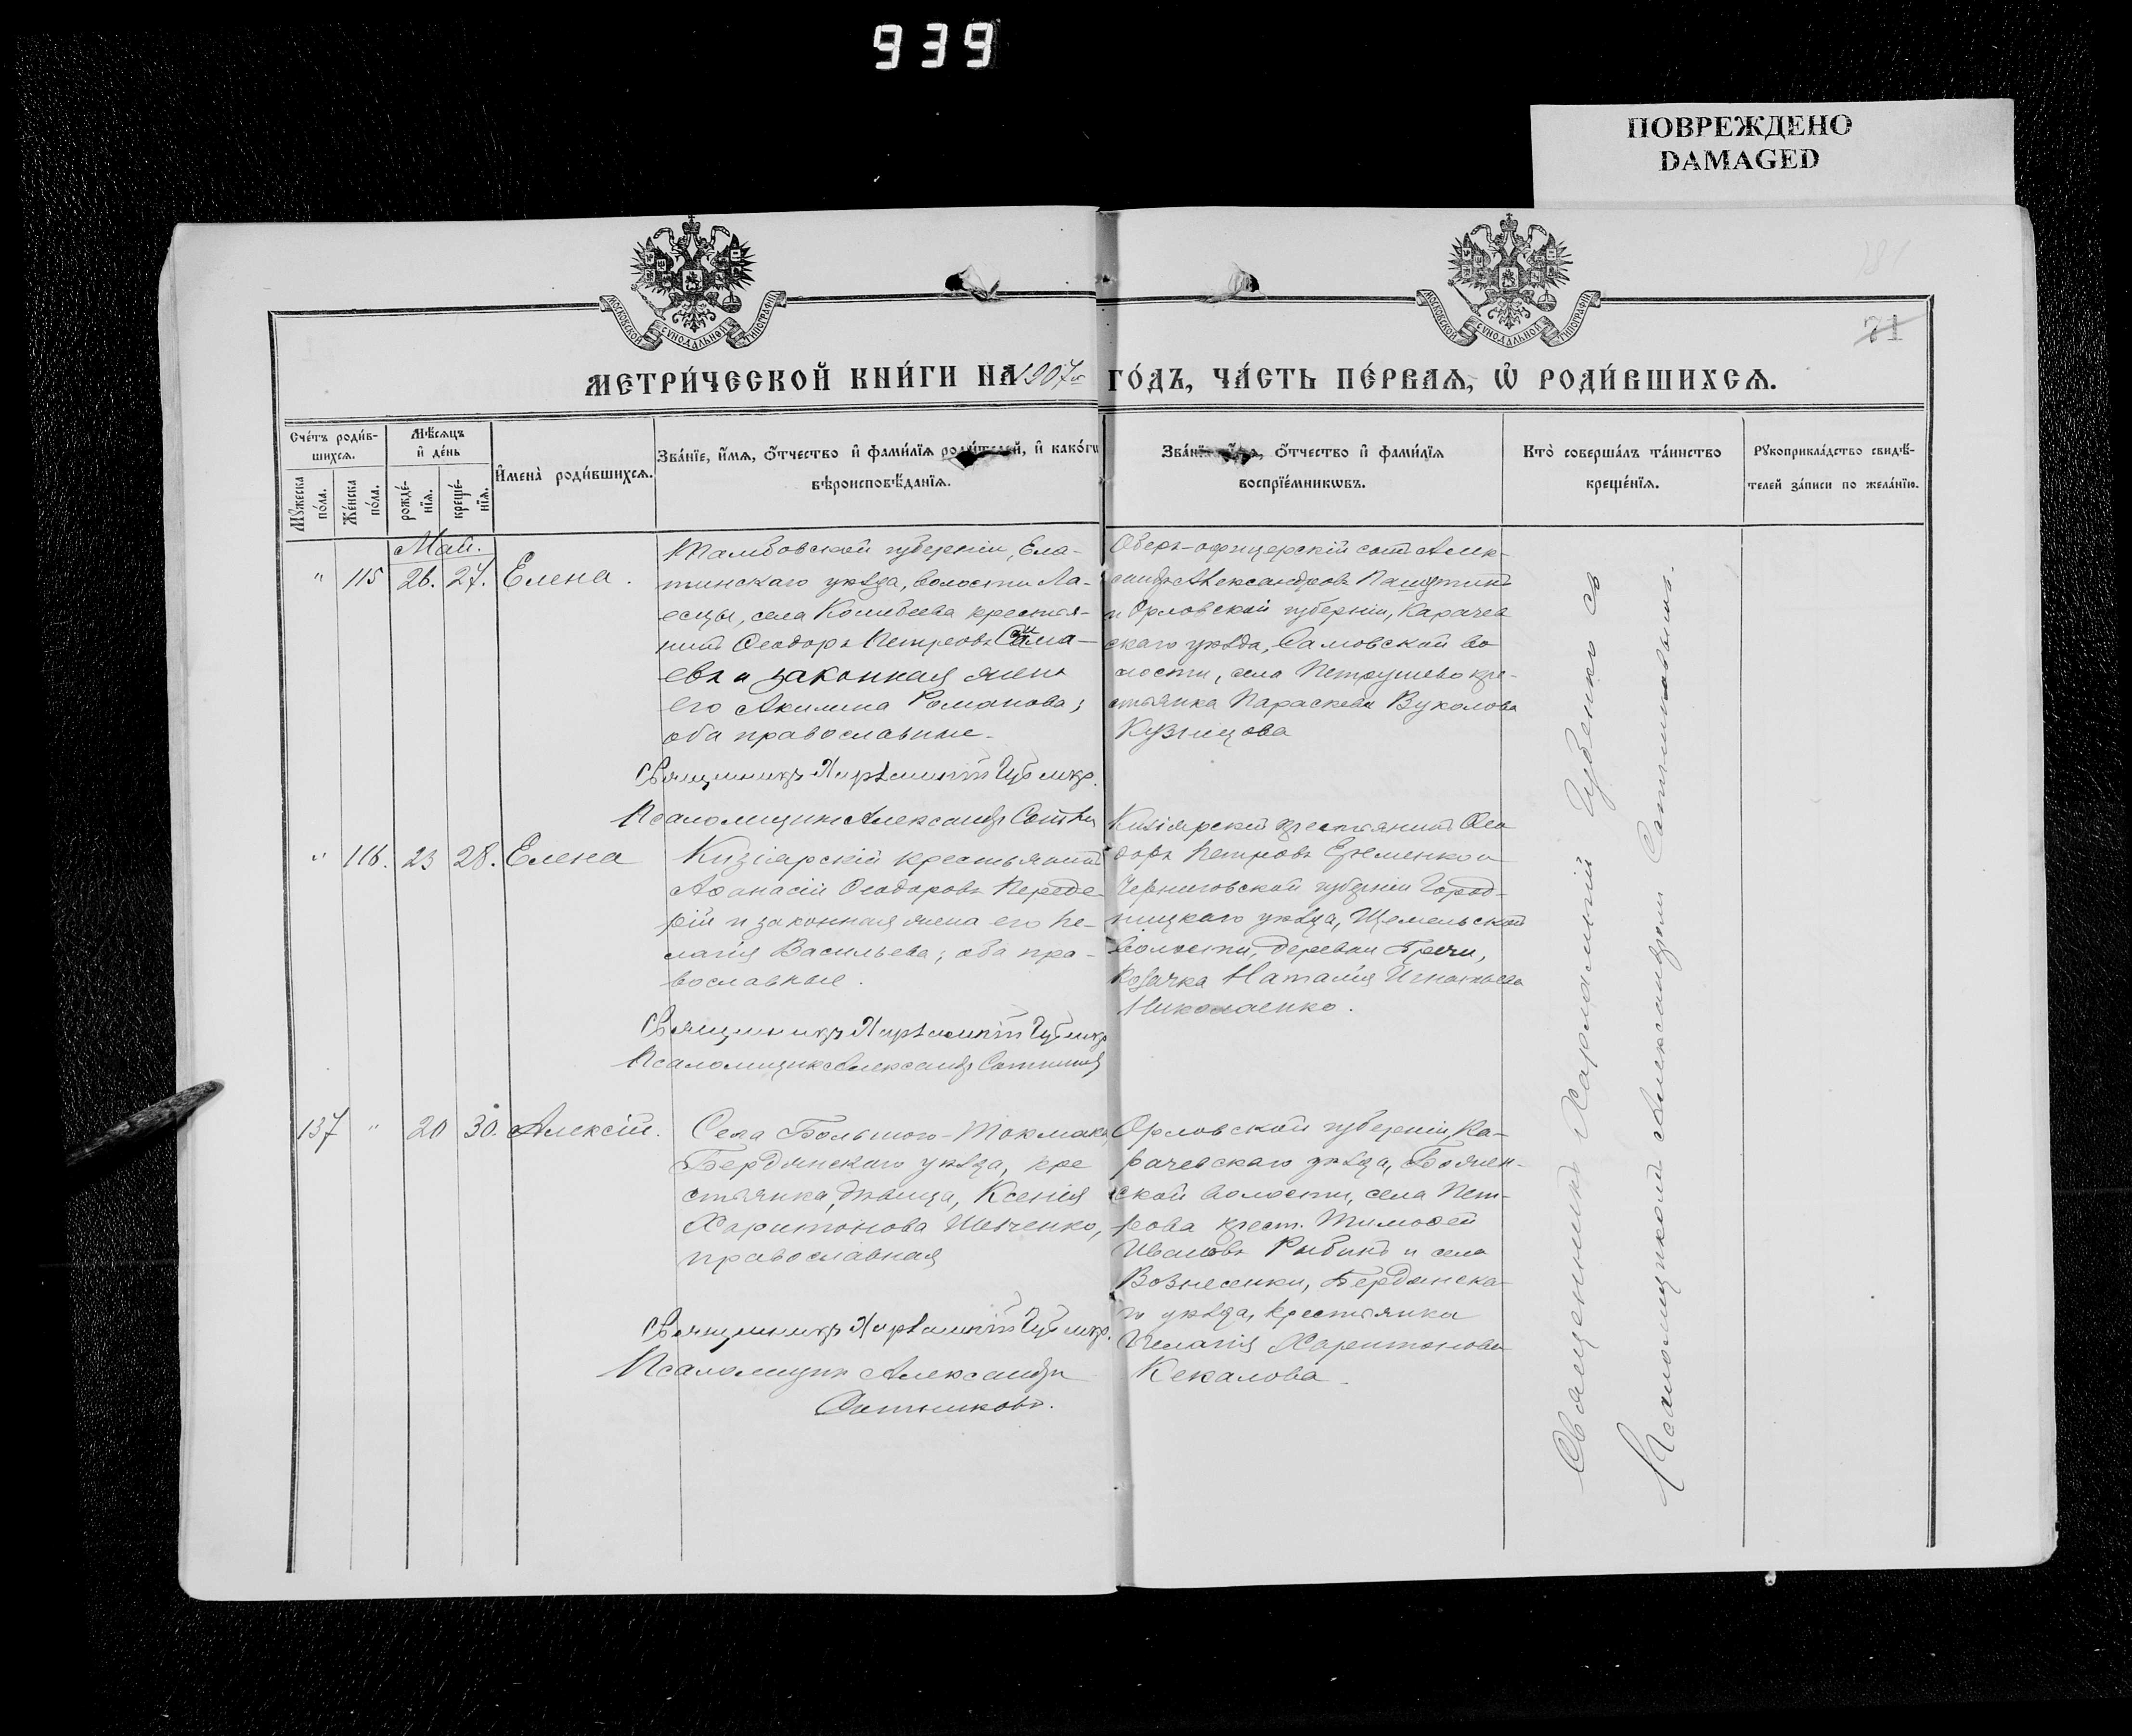 939
ПОВРЕЖДЕНО
DAMAGED
МОСКОВСКОЙ СѴНОДАЛЬНОЙ ТИПОГРАФІИ
МОСКОВСКОЙ СѴНОДАЛЬНОЙ ТИПОГРАФІИ
71
МЕТРИ́ЧЕСКОЙ КНИ́ГИ НА 1907й ГО́ДЪ, ЧА́СТЬ ПЕ́РВАѦ, Ѡ҆ РОДИ́ВШИХСѦ.
Сче́тъ роди́в-
шихсѧ.
Мꙋжеска по́ла.
Же́нска по́ла.
Мѣ́сѧцъ
и҆ де́нь
рожде́-
нїѧ.
креще́-
нїѧ.
И҆мена̀ роди́вшихсѧ.
Зва́нїе, и҆́мѧ, ѻ҆́тчество и҆ фами́лїѧ роди́телей, и҆ како́гѡ
вѣроисповѣ́данїѧ.
Зва́нїе, и҆́мѧ, ѻ҆́тчество и҆ фами́лїѧ
воспрїе́мникѡвъ.
Кто̀ соверша́лъ та́инство
креще́нїѧ.
Рꙋкоприкла́дство свидѣ́-
телей за́писи по жела́нїю.
Май.
" 115 26. 27. Елена.
Тамбовской губерніи, Ела-
тинскаго уѣзда, волости Ла-
есцы, села Колибеева крестья-
нинъ Ѳеодоръ Петровъ
евъ и законная жена
его Акилина Романова;
оба православные.
Священникъ Харлампій Губенко.
Псаломщикъ Александръ
Оберъ-офицерскій сынъ Алек-
сандръ Александровъ
и Орловской губерніи, Карачев
скаго уѣзда, Самовской во
лости, села Петрушево кре-
стьянка Параскева Вуколова
Кузнецова
" 116. 23 28. Елена
Кизіярскій крестьянинъ
Аѳанасій Ѳеодоровъ Переде-
рій и законная жена его Пе-
лагія Васильева; оба пра-
вославные.
Священникъ Харлампій Губенко
Псаломщикъ Александръ Сотников
Кизіярскій крестьянинъ Ѳео
доръ Петровъ Еременко и
Черниговской губерніи Город-
ницкаго уѣзда, Щемельской
волости, деревни Гречи,
козачка Наталія Игнатьева
Николаенко.
137 " 20 30. Алексій.
Села Большого-Токмака,
Бердянскаго уѣзда, кре
стьянка, дѣвица, Ксенія
Харитонова Шевченко,
православная
Священникъ Харлампій Губенко.
Псаломщикъ Александръ
Сотниковъ.
Орловской губерніи, Ка-
рачевскаго уѣзда,
ской волости, села Пет-
рова крест. Тимоѳей
Ивановъ Рыбинъ и села
Вознесенки, Бердянска-
го уѣзда, крестьянка
Пелагія Харитонова
Кекалова.
Священникъ Харлампій Губенко съ
Псаломщикомъ Александромъ Сотниковымъ.